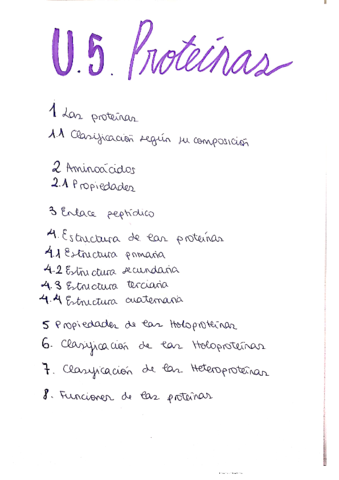 U.5. Proteínas
1 Las proteínas
1.1 Clasificación según su composición
2 Aminoácidos
2.1 Propiedades
3 Enlace peptídico
4. Estructura de las proteínas
4.1 Estructura primaria
4.2 Estructura secundaria
4.3 Estructura terciaria
4.4 Estructura cuaternaria
5 Propiedades de las Holoproteínas
6. Clasificación de las Holoproteínas
7. Clasificación de las Heteroproteínas
8. Funciones de las proteínas